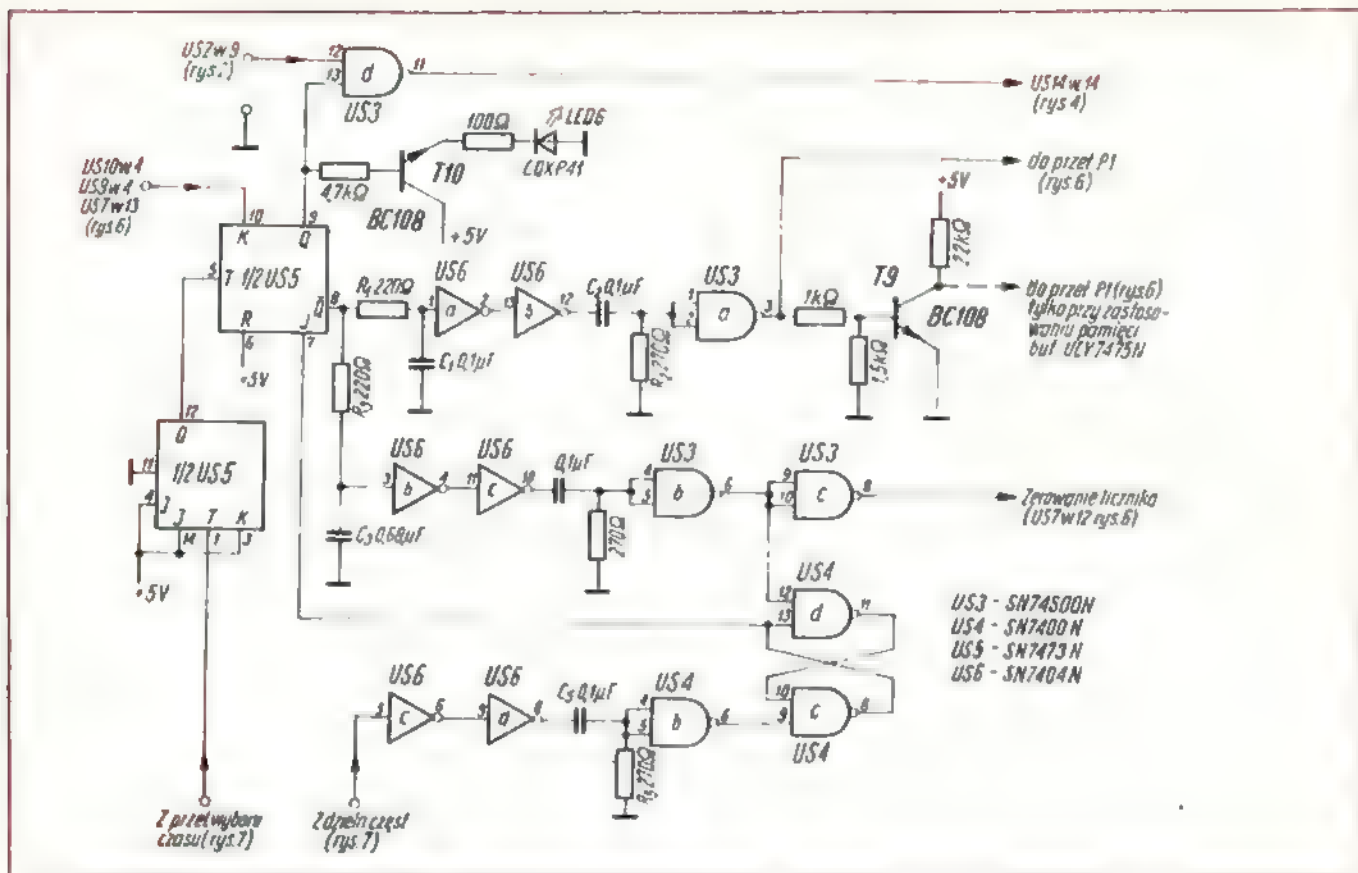 US2w9
(rys.
12
13
d
11
US3
US14w14
(rys 4)
100Ω
LED6
CQXP41
4,7kΩ
T10
BC108
+5V
do przeł P1
(rys.6)
US10w4
US9w4
US7w13
(rys.6)
10
9
K
Q
5
T
1/2 US5
Q
8
R
J
6
7
+5V
R1 220Ω
US6
1
a
2
US6
13
12
0,1µF
C1 0,1µF
R2 270Ω
US3
1
2
a
3
1kΩ
1,5kΩ
T9
BC108
+5V
22kΩ
do przeł P1 (rys.6)
tylko przy zastoso-
waniu pamięci
buf UCY7475N
R3 220Ω
12
Q
11
1/2 US5
4
J
J
T
K
14
1
3
+5V
US6
3
b
4
US6
11
c
10
0,1µF
270Ω
C3 0,68µF
US3
4
5
b
6
US3
9
10
c
8
Zerowanie licznika
(US7w12 rys.6)
US4
12
13
d
11
10
9
c
8
US4
US3 - SN74S00N
US4 - SN7400N
US5 - SN7473N
US6 - SN7404N
US6
5
c
6
US6
9
8
C5 0,1µF
R5 270Ω
US4
4
5
b
6
Z przeł wyboru
czasu (rys.7)
Z dzieln częst
(rys.7)